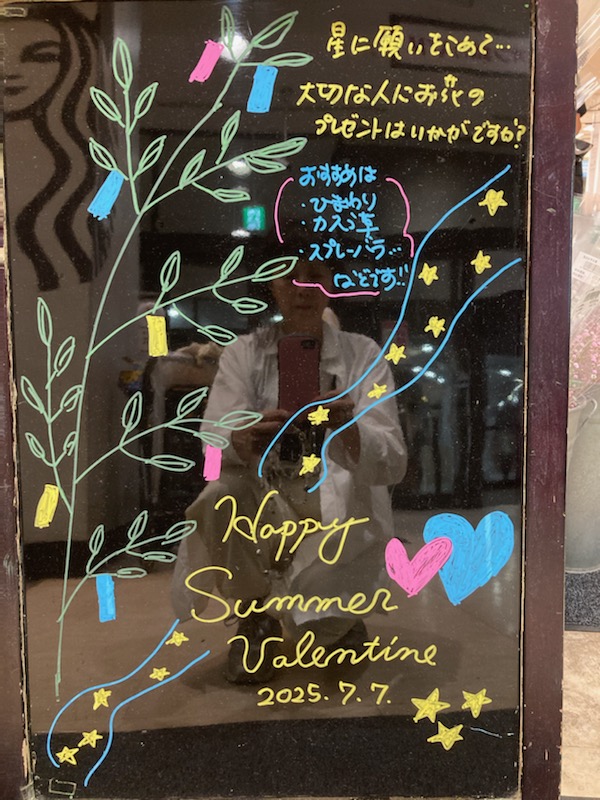 星に願いをこめて…
大切な人にお花の
プレゼントはいかがですか?
おすすめは
・ひまわり
・カスミ草
・スプレーバラ…
などです!!
Happy
Summer
Valentine
2025.7.7.